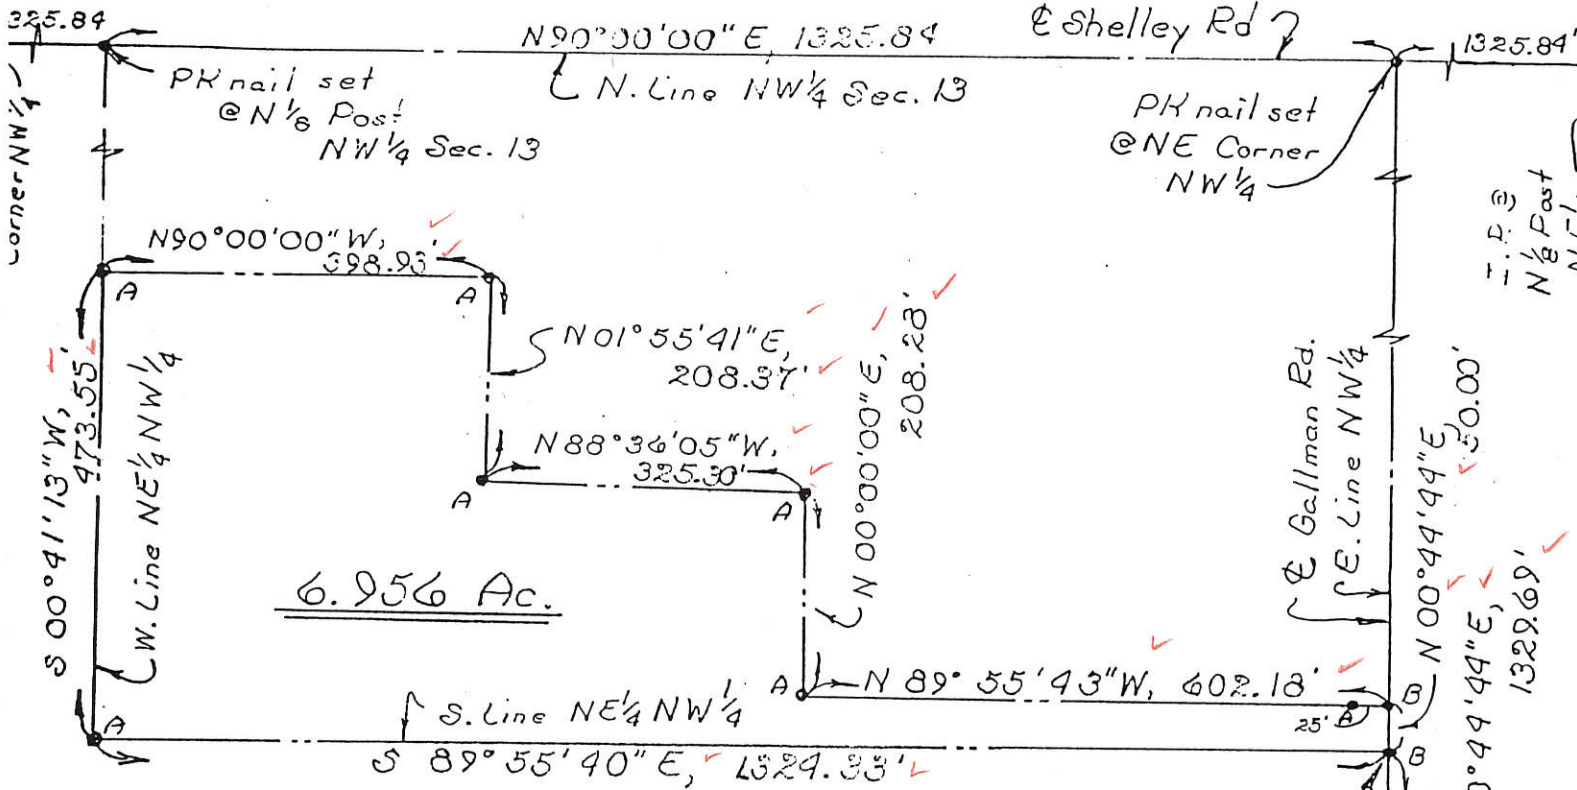 325.84
N90°00'00"E, 1325.84
℄ Shelley Rd
1325.84'
PK nail set
@ N 1/8 Post
NW 1/4 Sec. 13
N. Line NW 1/4 Sec. 13
PK nail set
@ NE Corner
NW 1/4
Corner NW 1/4
N 1/8 Post
N90°00'00"W,
398.93'
A
A
N01°55'41"E,
208.37'
N 00°00'00"E,
208.23'
S 00°41'13"W,
473.55'
W. Line NE 1/4 NW 1/4
N88°36'05"W,
325.30'
A
A
℄ Gallman Rd.
E. Line NW 1/4
N 00°44'44"E
50.00'
°44'44"E,
1329.69'
6.956 Ac.
A
N 89°55'43"W, 602.18'
25'
A
B
S. Line NE 1/4 NW 1/4
A
S 89°55'40"E, 1324.33'
B
A